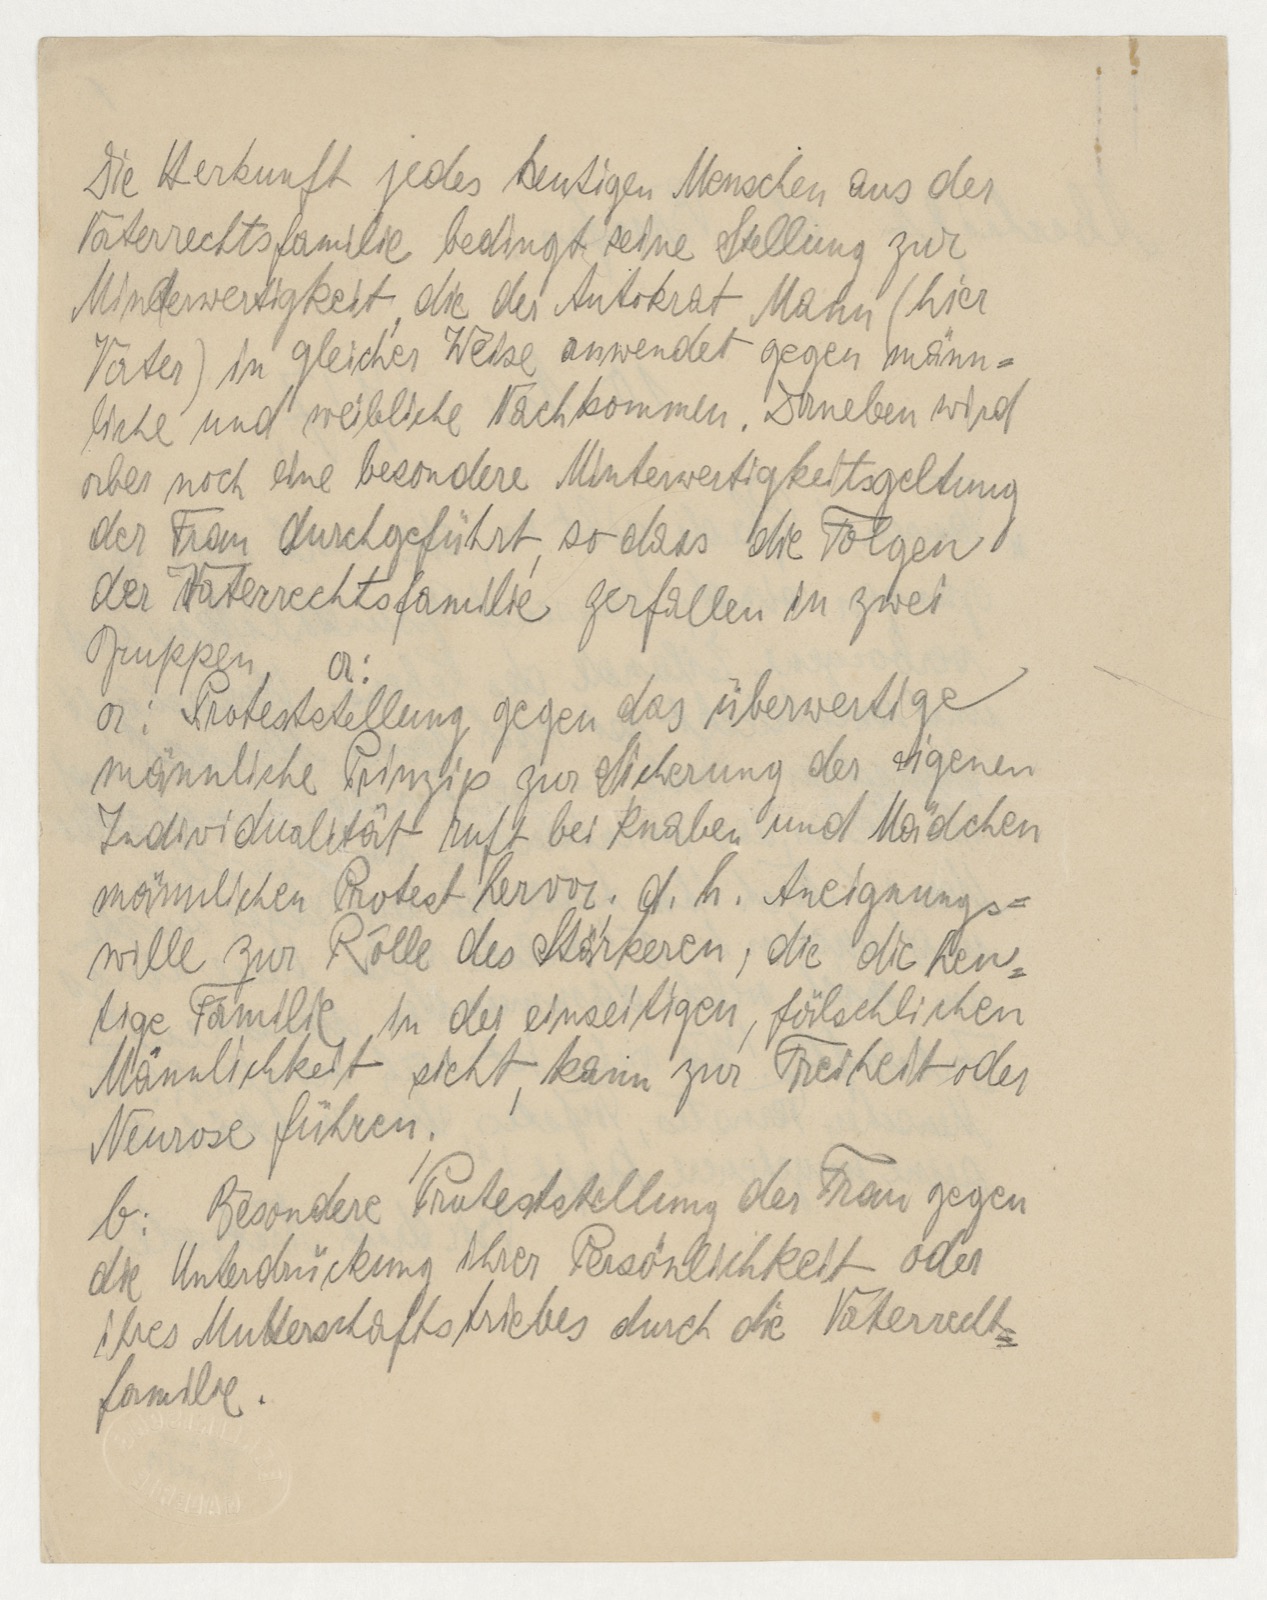 Die Herkunft jedes heutigen Menschen aus der
Vaterrechtsfamilie bedingt seine Stellung zur
Minderwertigkeit, die der Autokrat Mann (hier
Vater) in gleicher Weise anwendet gegen männ=
liche und weibliche Nachkommen. Daneben wird
aber noch eine besondere Minterwertigkeitsgeltung
der Frau durchgeführt, so dass die Folgen
der Vaterrechtsfamilie zerfallen in zwei
Gruppen, a:
a: Proteststellung gegen das überwertige
männliche Prinzip zur Sicherung der eigenen
Individualität ruft bei Knaben und Mädchen
männlichen Protest hervor. d. h. Aneignungs=
wille zur Rolle des Stärkeren, die die heu=
tige Familie in der einseitigen, fälschlichen
Männlichkeit sieht, kann zur Freiheit oder
Neurose führen.
b: Besondere Proteststellung der Frau gegen
die Unterdrückung ihrer Persönlichkeit oder
ihres Mutterschaftstriebes durch die Vaterrecht=
familie.